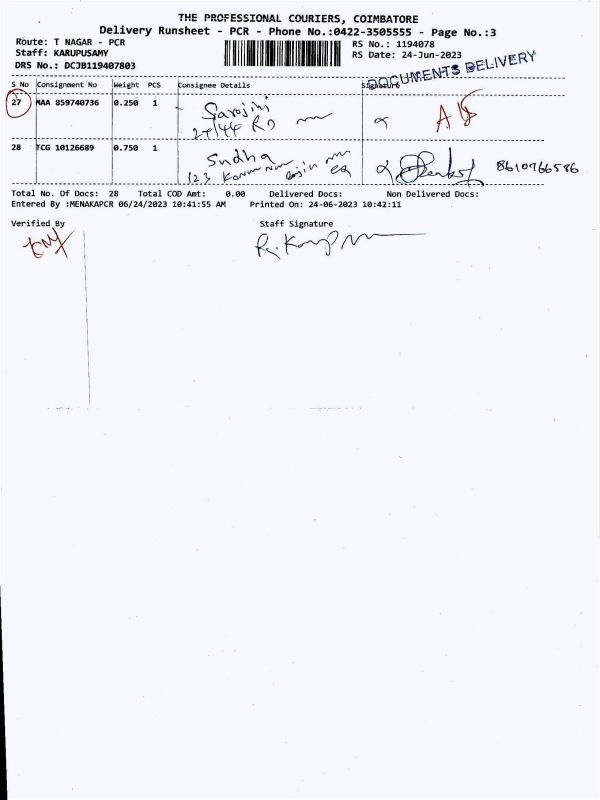 THE PROFESSIONAL COURIERS, COIMBATORE
Delivery Runsheet - PCR - Phone No.:0422-3505555 - Page No.:3
Route: T NAGAR - PCR RS No.: 1194078
Staff: KARUPUSAMY RS Date: 24-Jun-2023
DRS No.: DCJB119407803
DOCUMENTS DELIVERY
S No Consignment No Weight PCS Consignee Details Signature
27 MAA 859740736 0.250 1 Sarojini
28 TCG 10126689 0.750 1 Sudha 8610766586
123
Total No. Of Docs: 28 Total COD Amt: 0.00 Delivered Docs: Non Delivered Docs:
Entered By :MENAKAPCR 06/24/2023 10:41:55 AM Printed On: 24-06-2023 10:42:11
Verified By Staff Signature